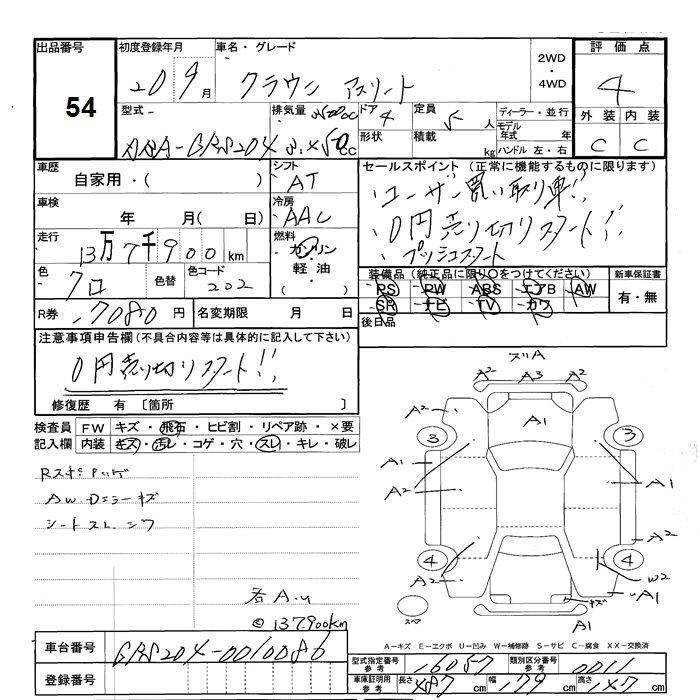 出品番号 初度登録年月 車名・グレード 評価点
54 20 9月 クラウン アスリート 2WD ・ 4WD 4
型式 排気量 cc ドア 4 定員 5人 ディーラー・並行 外装 内装
GRS204 形状 積載 kg モデル年式 年 ハンドル 左・右 C C
車歴 自家用・( ) シフト AT セールスポイント (正常に機能するものに限ります)
ユーザー買い取り車!!
車検 年 月(日) 冷房 AAC
0円売り切りスタート!!
走行 13万7千900km 燃料 ガソリン・軽油・( )
プッシュスタート
色 クロ 色替 色コード 202 装備品(純正品に限り○をつけてください) 新車保証書
PS PW ABS エアB AW 有・無
SR ナビ TV カワ
R券 7080円 名変期限 月 日 後日品
注意事項申告欄(不具合内容等は具体的に記入して下さい)
0円売り切りスタート!!
修復歴 有 〔箇所 〕
検査員 FW キズ・飛石・ヒビ割・リペア跡・×要
記入欄 内装 キズ・汚レ・コゲ・穴・スレ・キレ・破レ
AW・Dミラーキズ
シートスレ・シワ
各A.U
137,900km
スリA
A2 A3 A2
A2 A1 A2
3 3
A1
A2 A1
A2
4 4
A2 W2
キズ A1
スペア A1
A-キズ E-エクボ U-凹み W-補修跡 S-サビ C-腐食 XX-交換済
車台番号 GRS204-0010086
型式指定番号 参考 16057 類別区分番号 参考 0011
登録番号 車庫証明用 参考 長さ 487cm 幅 179cm 高さ 147cm